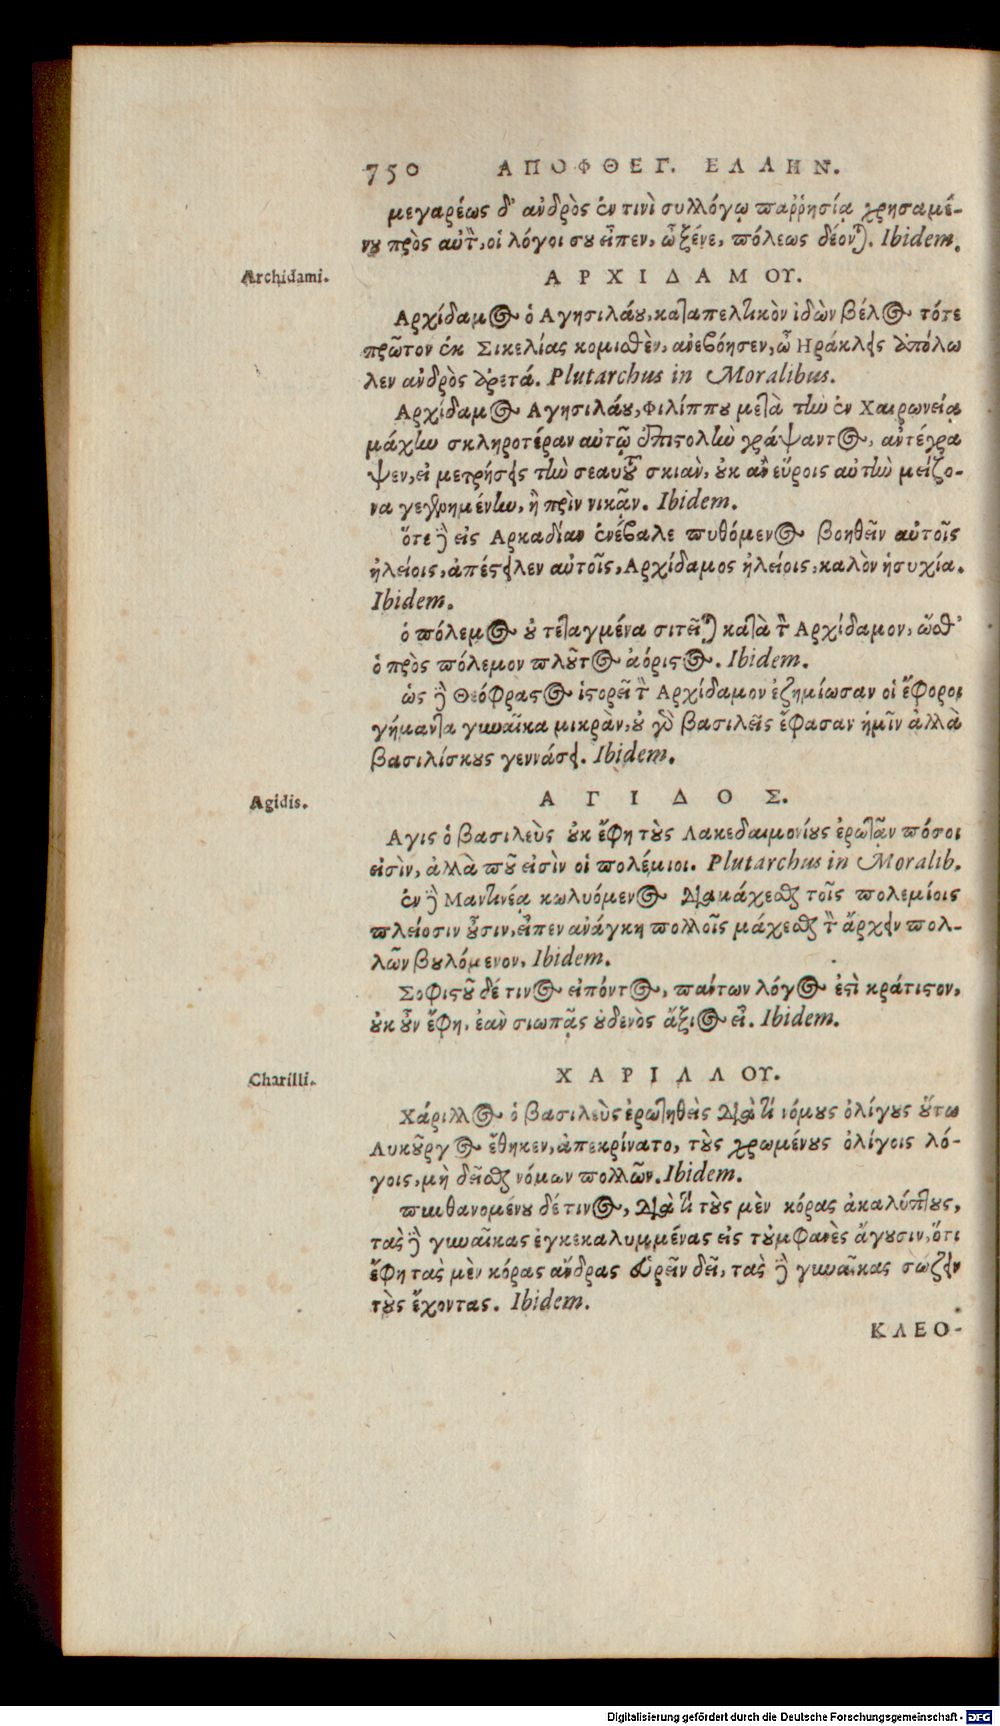 750 ΑΠΟΦΘΕΓ. ΕΛΛΗΝ.
μεγαρέως δ' ἀνδρὸς ἐν τινὶ συλλόγῳ παῤῥησίᾳ χρησαμέ-
νου πρὸς αὐτὸν, οἱ λόγοι σου εἶπεν, ὦ ξένε, πόλεως δέονται. Ibidem.
Archidami.
ΑΡΧΙΔΑΜΟΥ.
Αρχίδαμος ὁ Αγησιλάου, καταπελτικὸν ἰδὼν βέλος τότε
πρῶτον ἐκ Σικελίας κομισθὲν, ἀνεβόησεν, ὦ Ηράκλεις ἀπόλω
λεν ἀνδρὸς ἀρετά. Plutarchus in Moralibus.
Αρχίδαμος Αγησιλάου, Φιλίππου μετὰ τὴν ἐν Χαιρωνείᾳ
μάχην σκληροτέραν αὐτῷ ἐπιστολὴν γράψαντος, ἀντέγρα
ψεν, εἰ μετρήσεις τὴν σεαυτοῦ σκιὰν, οὐκ ἂν εὕροις αὐτὴν μείζο-
να γεγενημένην, ἢ πρὶν νικᾶν. Ibidem.
ὅτε δὲ εἰς Αρκαδίαν ἐνέβαλε πυθόμενος βοηθεῖν αὐτοῖς
ἠλείοις, ἀπέστειλεν αὐτοῖς, Αρχίδαμος ἠλείοις, καλὸν ἡσυχία.
Ibidem.
ὁ πόλεμος οὐ τεταγμένα σιτεῖται κατὰ τὸν Αρχίδαμον, ὥσθ'
ὁ πρὸς πόλεμον πλοῦτος ἀόριστος. Ibidem.
ὡς δὲ Θεόφραστος ἱστορεῖ τὸν Αρχίδαμον ἐζημίωσαν οἱ ἔφοροι
γήμαντα γυναῖκα μικρὰν, οὐ γὰρ βασιλεῖς ἔφασαν ἡμῖν ἀλλὰ
βασιλίσκους γεννάσει. Ibidem.
Agidis.
ΑΓΙΔΟΣ.
Αγις ὁ βασιλεὺς οὐκ ἔφη τοὺς Λακεδαιμονίους ἐρωτᾶν πόσοι
εἰσὶν, ἀλλὰ ποῦ εἰσὶν οἱ πολέμιοι. Plutarchus in Moralib.
ἐν δὲ Μαντινέᾳ κωλυόμενος διαμάχεσθαι τοῖς πολεμίοις
πλείοσιν οὖσιν, εἶπεν ἀνάγκη πολλοῖς μάχεσθαι τὸν ἄρχειν πολ-
λῶν βουλόμενον, Ibidem.
Σοφιστοῦ δέ τινος εἰπόντος, πάντων λόγος ἐστὶ κράτιστον,
οὐκ οὖν ἔφη, ἐὰν σιωπᾷς οὐδενὸς ἄξιος εἶ. Ibidem.
Charilli.
ΧΑΡΙΛΛΟΥ.
Χάριλλος ὁ βασιλεὺς ἐρωτηθεὶς διὰ τί νόμους ὀλίγους οὕτω
Λυκοῦργος ἔθηκεν, ἀπεκρίνατο, τοὺς χρωμένους ὀλίγοις λό-
γοις, μὴ δεῖσθαι νόμων πολλῶν. Ibidem.
πυνθανομένου δέ τινος, διὰ τί τοὺς μὲν κόρας ἀκαλύπτους,
τὰς δὲ γυναῖκας ἐγκεκαλυμμένας εἰς τοὐμφανὲς ἄγουσιν, ὅτι
ἔφη τὰς μὲν κόρας ἄνδρας εὑρεῖν δεῖ, τὰς δὲ γυναῖκας σώζειν
τοὺς ἔχοντας. Ibidem.
ΚΛΕΟ-
Digitalisierung gefördert durch die Deutsche Forschungsgemeinschaft - DFG